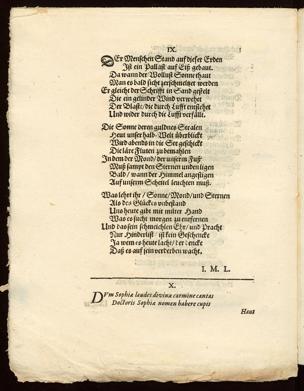 IX.
DEr Menschen Stand auff dieser Erden
Ist ein Pallast auf Eiß gebaut.
Da wann der Wollust Sonne thaut
Man es bald sieht zerschmeltzet werden
Er gleicht der Schrifft in Sand gestelt
Die ein gelinder Wind verwehet
Der Blast, die durch Lufft entstehet
Und wider durch die Lufft verfällt.
Die Sonne deren guldnen Stralen
Heut unser halb-Welt überblickt
Wird abends in die See geschickt
Die Fluten zu bemahlen
In dem der Mond, der unserm Fuß
Muß sampt den Sternen unden ligen
Bald, wann der Himmel
Auf unserm Scheitel leuchten muß.
Was lehrt ihr, Sonne, Mond, und Sternen
Als des Glückes unbestand
Uns heute gibt mit milter Hand
Was es sucht morgen zu entfernen
Und das sein schmeichlen Ehr, und Pracht
Nur Hinderlist, ist kein Geschencke
Ja wem es heute lacht, der dencke
Daß es auf sein verderben wacht.
I. M. L.
X.
DVm Sophia laudes divina carmine cantas
Doctoris Sophia nomen habere cupis
Haus